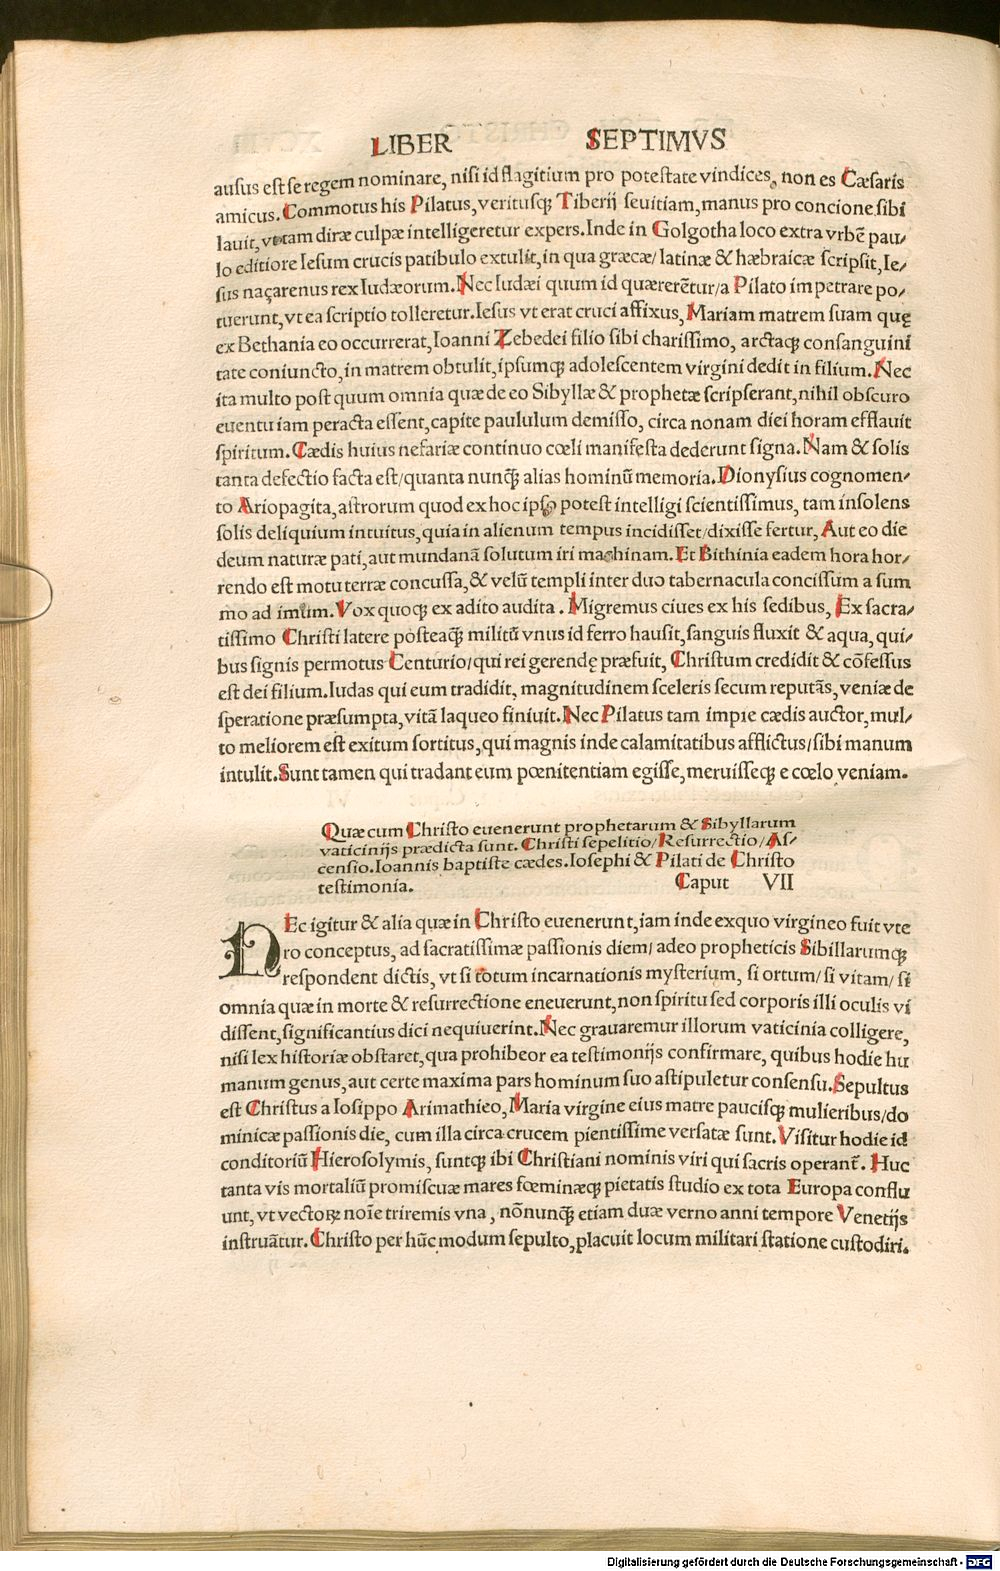 LIBER SEPTIMVS
ausus est se regem nominare, nisi id flagitium pro potestate vindices, non es Cæsaris
amicus. Commotus his Pilatus, veritusqꝫ Tiberij seuitiam, manus pro concione sibi
lauit, vt tam diræ culpæ intelligeretur expers. Inde in Golgotha loco extra vrbē pau/
lo editiore Iesum crucis patibulo extulit, in qua græcæ/ latinæ & hæbraicæ scripsit, Ie/
sus naçarenus rex Iudæorum. Nec Iudæi quum id quærerētur/a Pilato impetrare po/
tuerunt, vt ea scriptio tolleretur. Iesus vt erat cruci affixus, Mariam matrem suam quę
ex Bethania eo occurrerat, Ioanni Zebedei filio sibi charissimo, arctaqꝫ consanguini
tate coniuncto, in matrem obtulit, ipsumqꝫ adolescentem virgini dedit in filium. Nec
ita multo post quum omnia quæ de eo Sibyllæ & prophetæ scripserant, nihil obscuro
euentu iam peracta essent, capite paululum demisso, circa nonam diei horam efflauit
spiritum. Cædis huius nefariæ continuo cœli manifesta dederunt signa. Nam & solis
tanta defectio facta est/ quanta nunqꝫ̄ alias hominū memoria. Dionysius cognomen/
to Ariopagita, astrorum quod ex hoc ipso potest intelligi scientissimus, tam insolens
solis deliquium intuitus, quia in alienum tempus incidisset/ dixisse fertur, Aut eo die
deum naturæ pati, aut mundanā solutum iri machinam. Et Bithinia eadem hora hor/
rendo est motu terræ concussa, & velū templi inter duo tabernacula concissum a sum
mo ad imum. Vox quoqꝫ ex adito audita. Migremus ciues ex his sedibus, Ex sacra/
tissimo Christi latere posteaqꝫ̄ militū vnus id ferro hausit, sanguis fluxit & aqua, qui/
bus signis permotus Centurio/ qui rei gerendę præfuit, Christum credidit & cōfessus
est dei filium. Iudas qui eum tradidit, magnitudinem sceleris secum reputās, veniæ de
speratione præsumpta, vitā laqueo finiuit. Nec Pilatus tam impie cædis auctor, mul/
to meliorem est exitum sortitus, qui magnis inde calamitatibus afflictus/ sibi manum
intulit. Sunt tamen qui tradant eum pœnitentiam egisse, meruisseqꝫ e cœlo veniam.
Quæ cum Christo euenerunt prophetarum & Sibyllarum
vaticinijs prædicta sunt. Christi sepelitio/ Resurrectio/ As/
censio. Ioannis baptiste cædes. Iosephi & Pilati de Christo
testimonia. Caput VII
NEc igitur & alia quæ in Christo euenerunt, iam inde exquo virgineo fuit vte
ro conceptus, ad sacratissimæ passionis diem/ adeo propheticis Sibillarumqꝫ
respondent dictis, vt si totum incarnationis mysterium, si ortum/ si vitam/ si
omnia quæ in morte & resurrectione eneuerunt, non spiritu sed corporis illi oculis vi
dissent, significantius dici nequiuerint. Nec grauaremur illorum vaticinia colligere,
nisi lex historiæ obstaret, qua prohibeor ea testimonijs confirmare, quibus hodie hu
manum genus, aut certe maxima pars hominum suo astipuletur consensu. Sepultus
est Christus a Iosippo Arimathieo, Maria virgine eius matre paucisqꝫ mulieribus/ do
minicæ passionis die, cum illa circa crucem pientissime versatæ sunt. Visitur hodie id
conditoriū Hierosolymis, suntqꝫ ibi Christiani nominis viri qui sacris operant̄. Huc
tanta vis mortaliū promiscuæ mares fœminæqꝫ pietatis studio ex tota Europa conflu
unt, vt vectoꝝ noīe triremis vna, nōnunqꝫ̄ etiam duæ verno anni tempore Venetijs
instruātur. Christo per hūc modum sepulto, placuit locum militari statione custodiri.
Digitalisierung gefördert durch die Deutsche Forschungsgemeinschaft - DFG